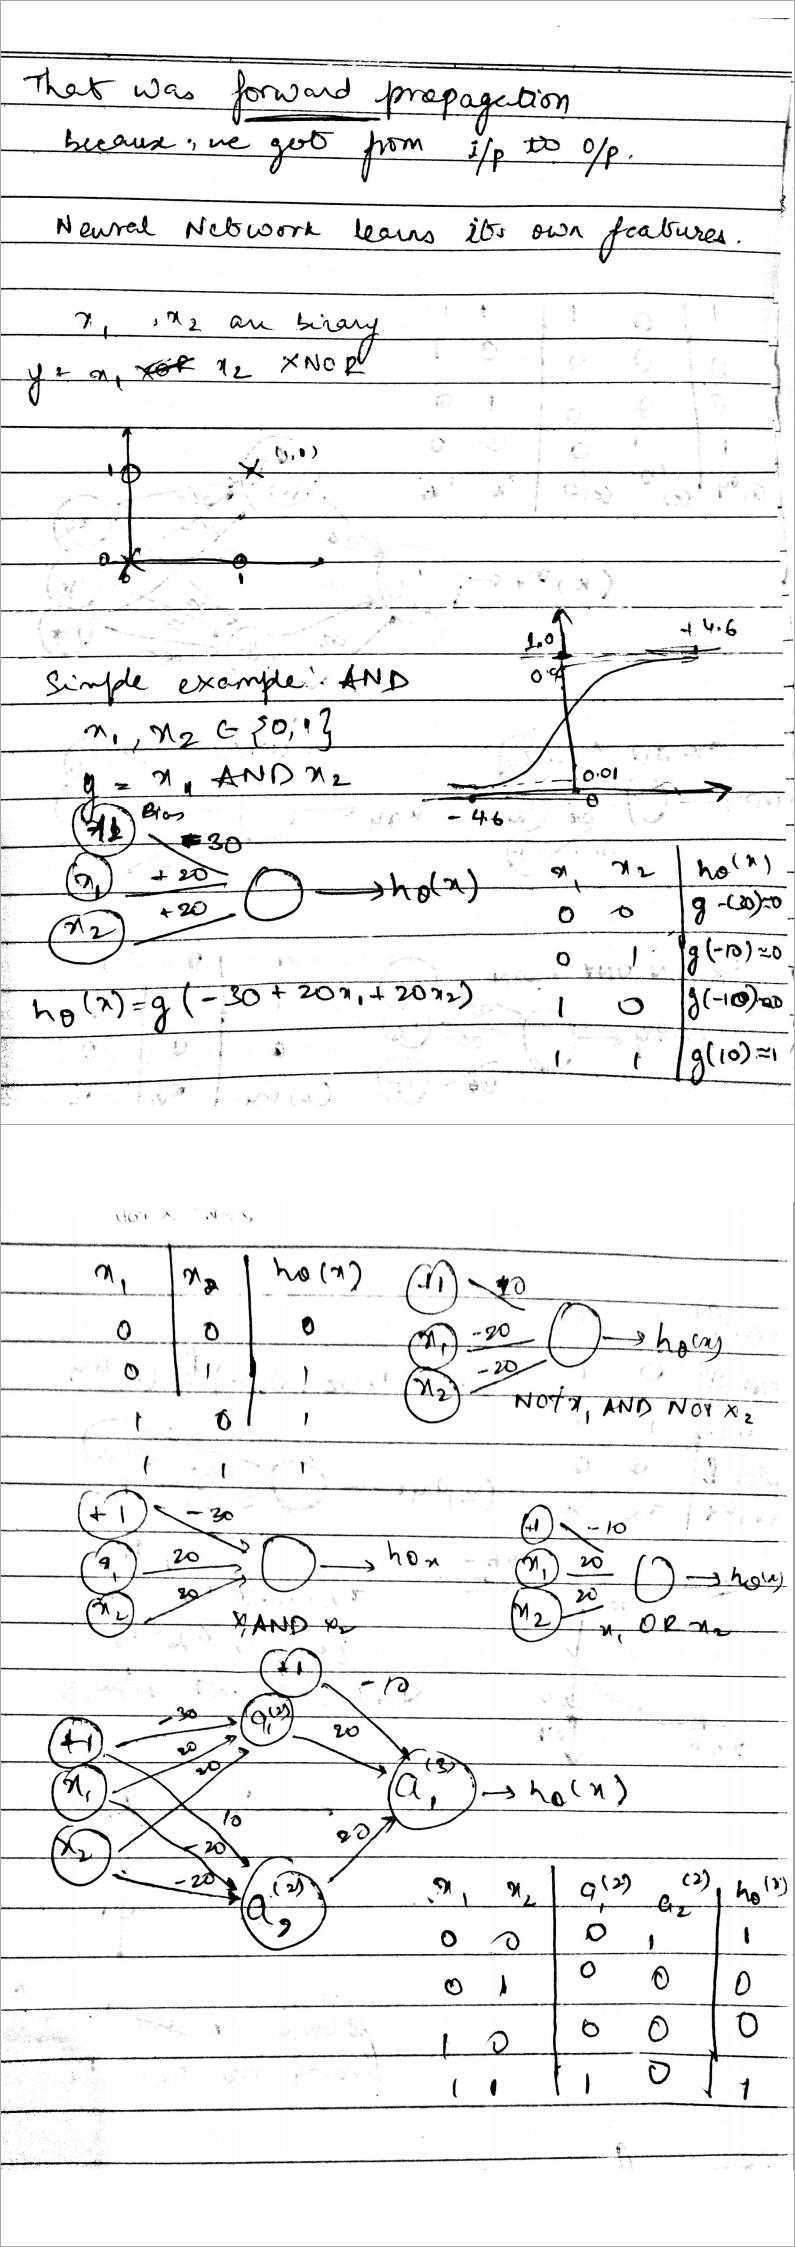 That was forward propagation
because, we got from i/p to o/p.
Neural Network learns its own features.
x₁, x₂ are binary
y = x₁ XOR x₂ XNOR
1
(1,1)
0
0
1
1.0
0.9
+4.6
0.01
0
-4.6
Simple example: AND
x₁, x₂ ∈ {0,1}
y = x₁ AND x₂
Bias
-30
x₁ +20
x₂ +20
→ hθ(x)
hθ(x) = g(-30 + 20x₁ + 20x₂)
x₁ x₂ hθ(x)
0 0 g-(30)≈0
0 1 g(-10)≈0
1 0 g(-10)≈0
1 1 g(10)≈1
x₁ x₂ hθ(x)
0 0 0
0 1 1
1 0 1
1 1 1
+1 10
x₁ -20 → hθ(x)
x₂ -20
NOT x₁ AND NOT x₂
+1 -30
x₁ 20 → hθx
x₂ 20
x₁ AND x₂
+1 -10
x₁ 20 → hθ(x)
x₂ 20
x₁ OR x₂
+1 -10
+1 -30 a₁⁽²⁾ 20
x₁ 20 20 a₁⁽³⁾ → hθ(x)
x₂ 10 20
-20
-20 a₂⁽²⁾
x₁ x₂ a₁⁽²⁾ a₂⁽²⁾ hθ(x)
0 0 0 1 1
0 1 0 0 0
1 0 0 0 0
1 1 1 0 1